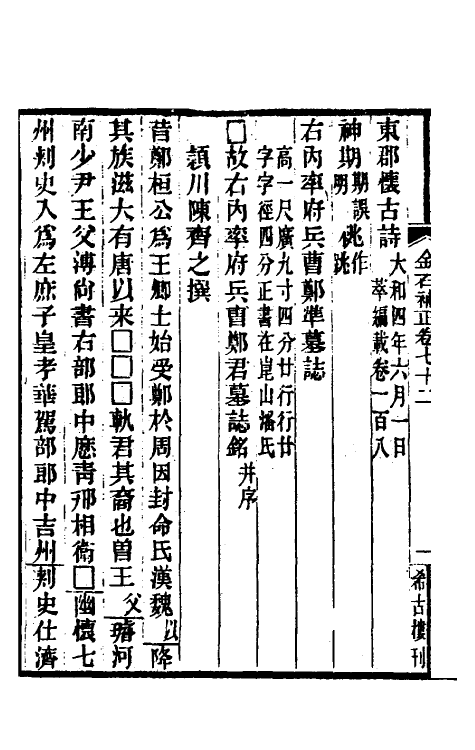 金石補正卷七十二
一
希古樓刊
東郡懷古詩
大和四年六月一日
萃編載卷一百八
神期
期誤明
佻
作跳
右內率府兵曹鄭準墓誌
高一尺廣九寸四分廿行行廿
字字徑四分正書在崑山潘氏
□故右內率府兵曹鄭君墓誌銘并序
潁川陳齊之撰
昔鄭桓公爲王卿士始受鄭於周因封命氏漢魏以降
其族滋大有唐以来□□□軌君其裔也曾王父璿河
南少尹王父溥尚書右部郎中歷青邢相衛□幽懷七
州刺史入爲左庶子皇考華駕部郎中吉州刺史仕濟